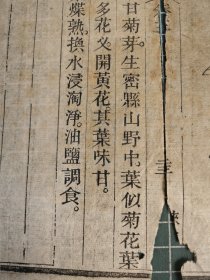 甘菊芽。生密縣山野中。葉似菊花葉
多花叉開黃花。其葉味甘。
煠熟。換水浸淘淨。油鹽調食。